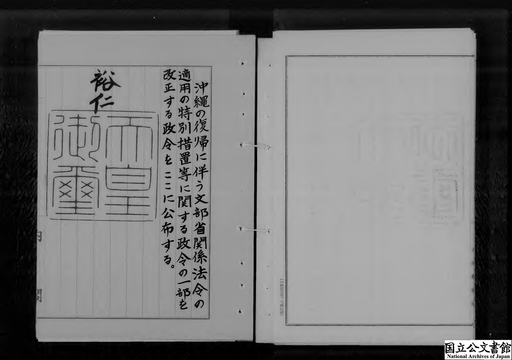 沖縄の復帰に伴う文部省関係法令の
適用の特別措置等に関する政令の一部を
改正する政令をここに公布する。
裕仁
天皇
御璽
国立公文書館
National Archives of Japan